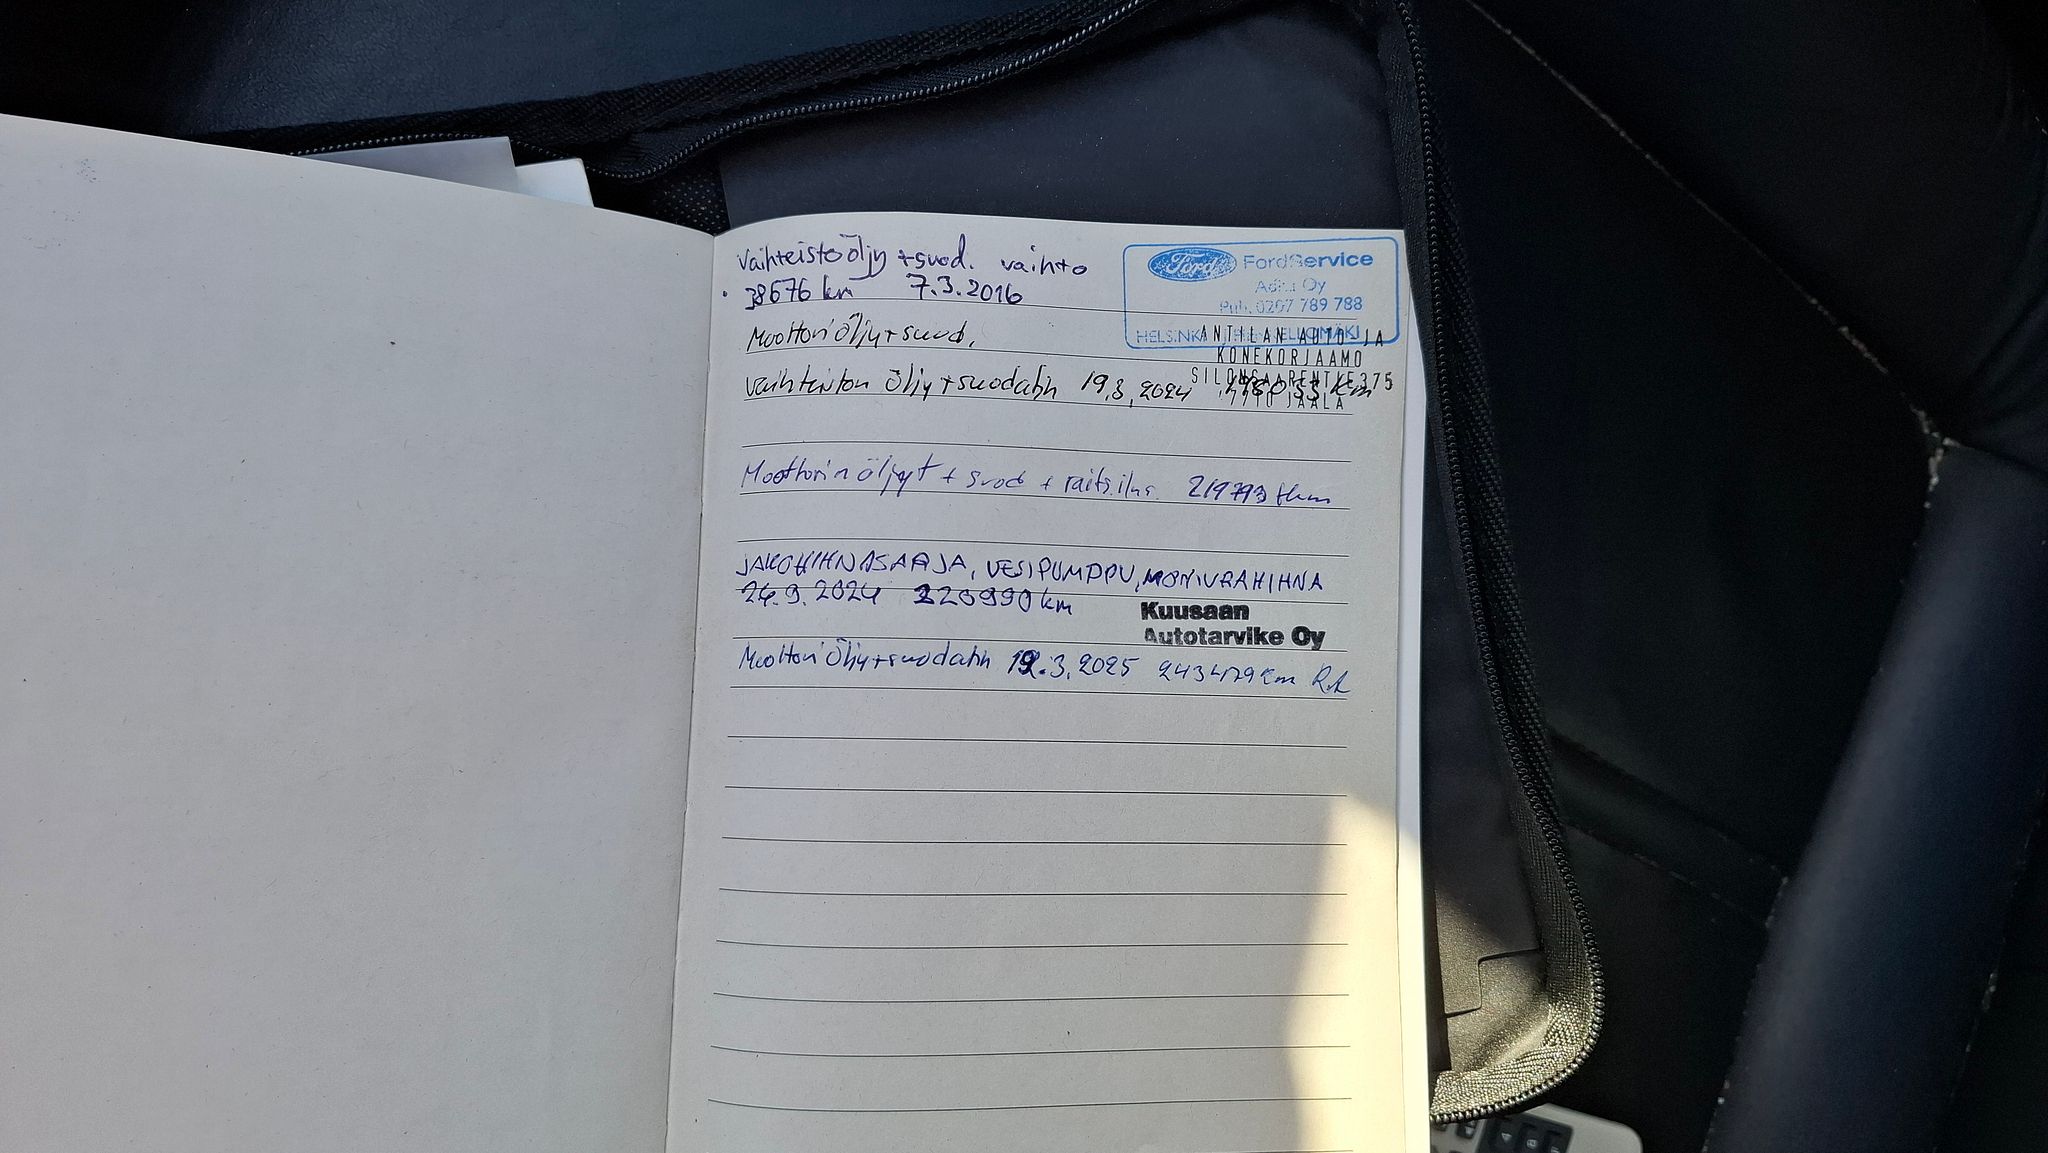 Vaihteistoöljy + suod. vaihto
38676 km 7.3.2016
Ford FordService
Oy
Puh. 0207 789 788
Moottoriöljy + suod.
ANTILAN AUTO- JA
KONEKORJAAMO
SILONSAARENTIE 375
JAALA
Vaihteiston öljy + suodatin 19.3.2024 km
Moottorin öljyt + suod + raits.ilm. 219793 tkm
JAKOHIHNASARJA, VESIPUMPPU, MONIURAHIHNA
24.9.2024 220990 km
Kuusaan
Autotarvike Oy
Moottoriöljy + suodatin 19.3.2025 243479 km R.A